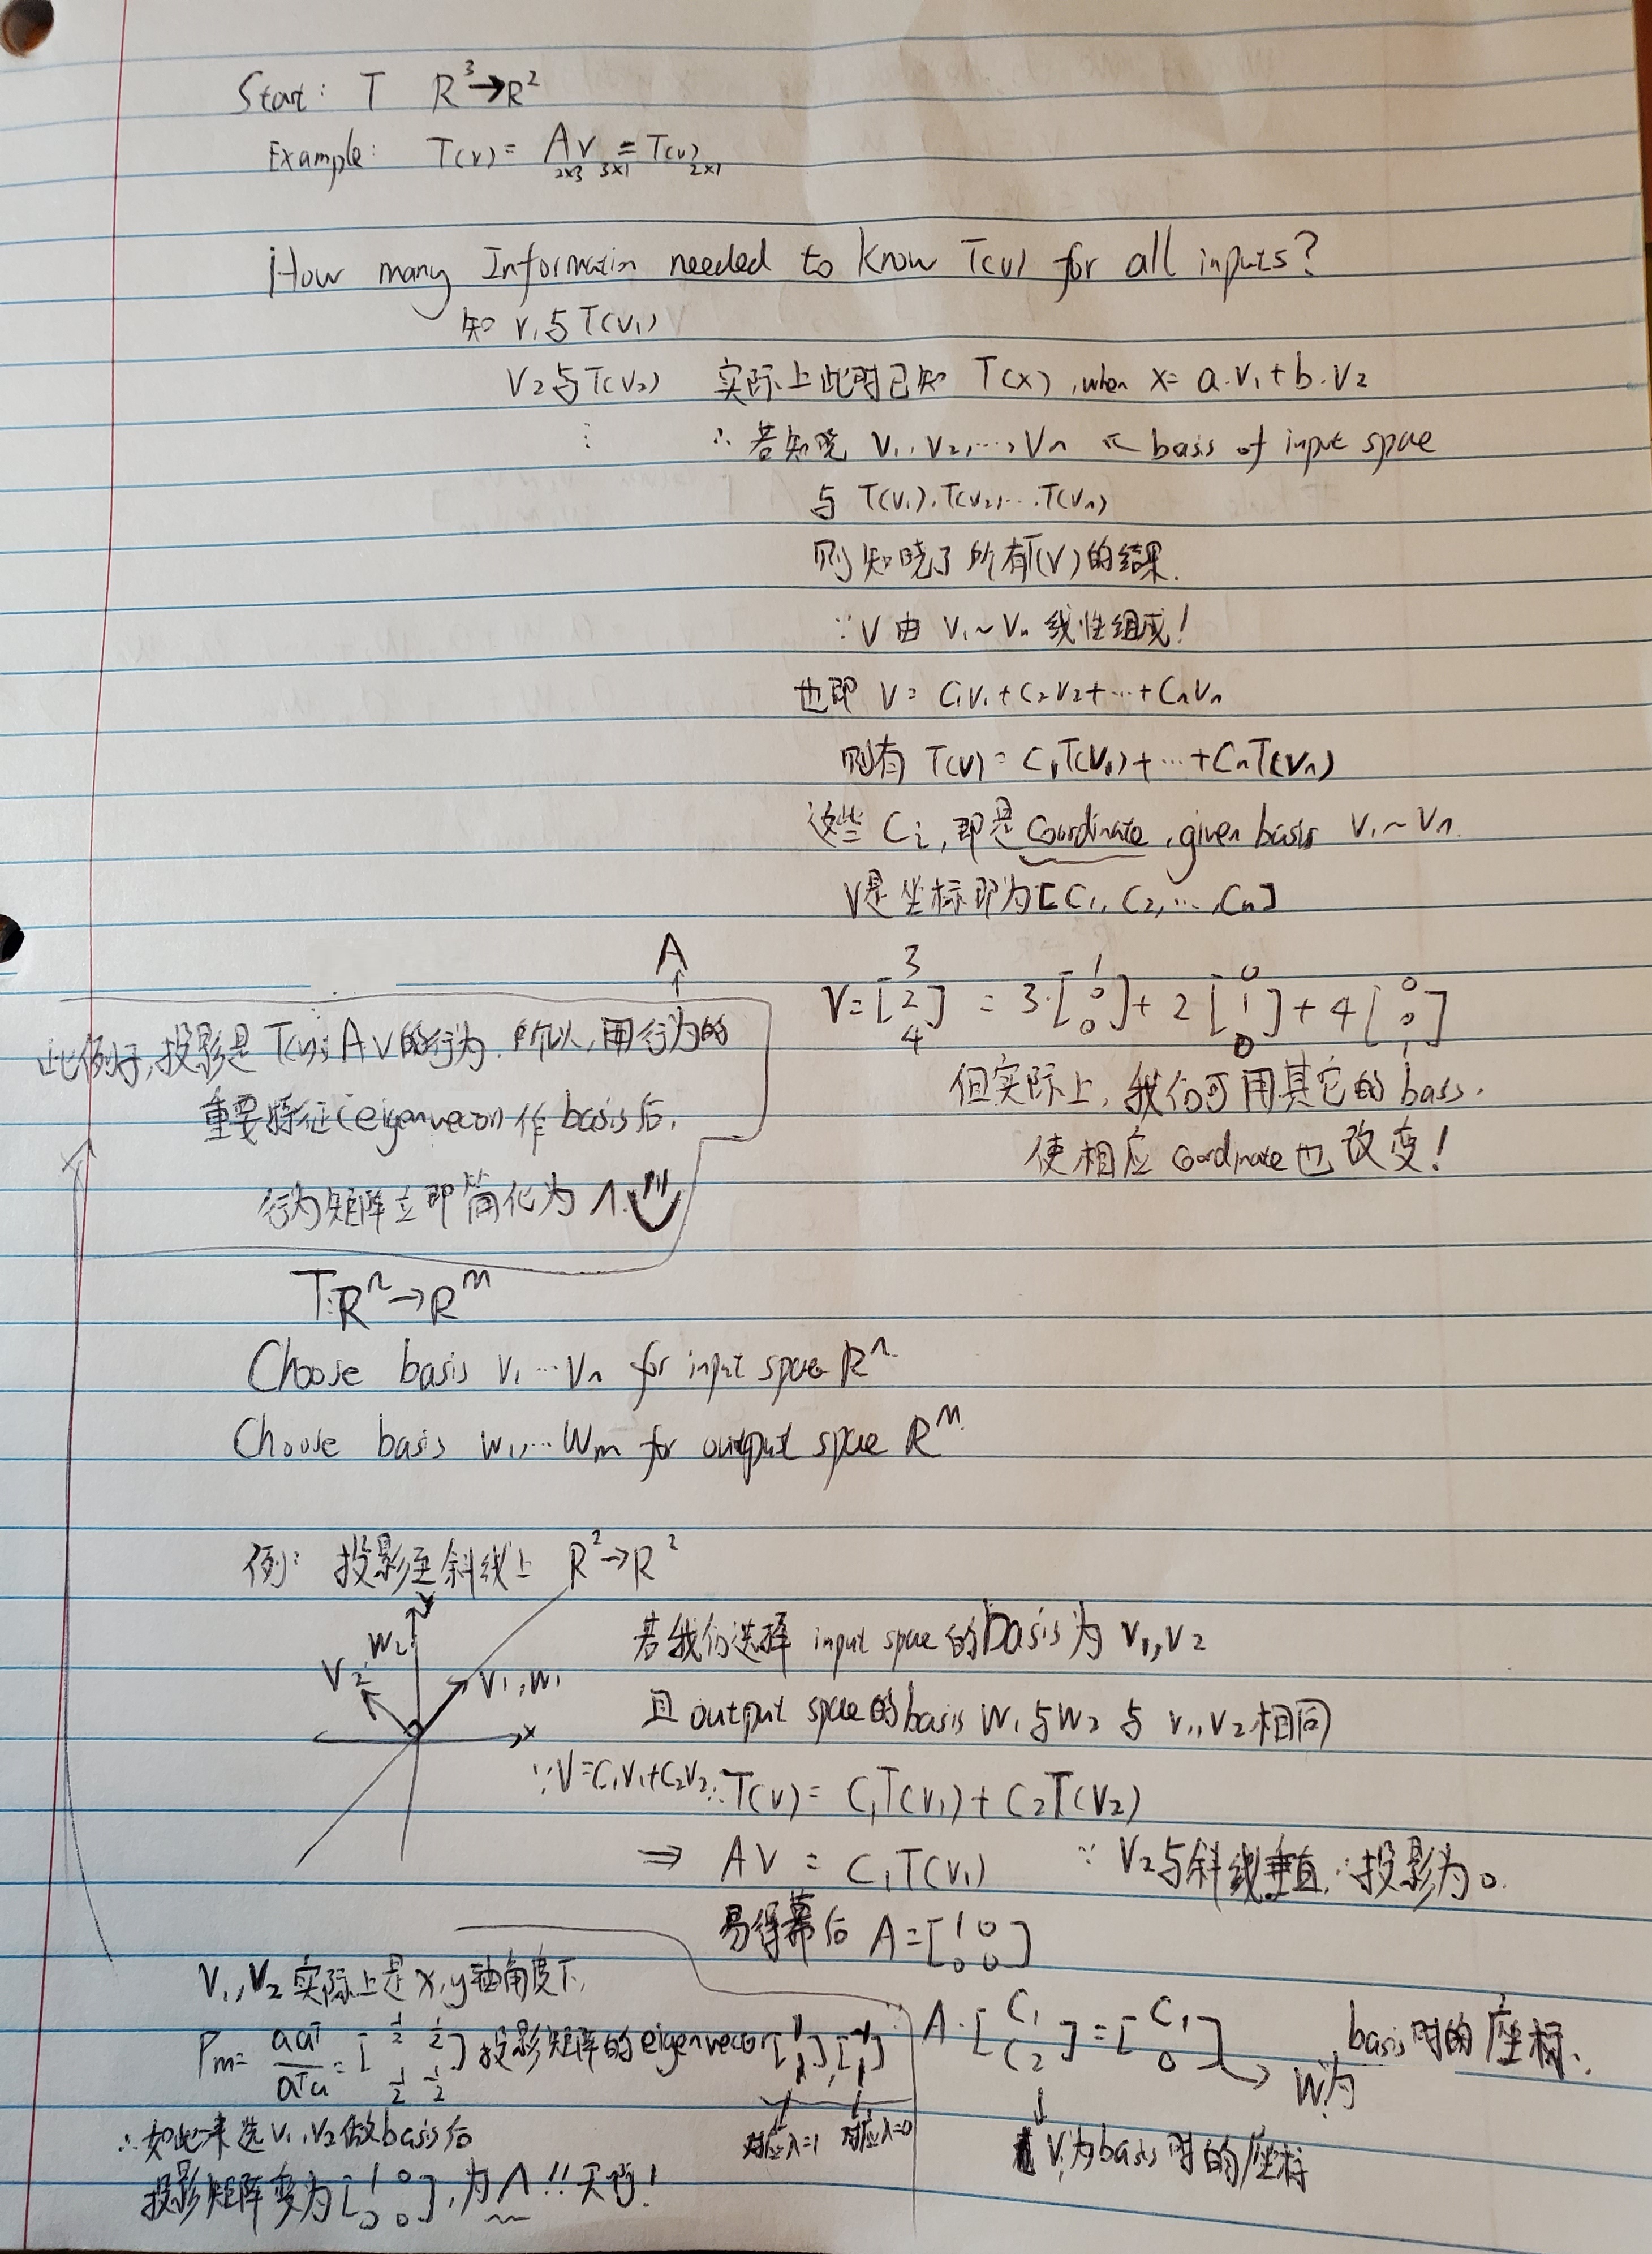 Start: T R³→R²
Example: T(v) = Av = T(v)
2×3 3×1 2×1
How many Information needed to know T(v) for all inputs?
知 v₁与T(v₁)
v₂与T(v₂) 实际上此时已知 T(x), when x = a·v₁+b·v₂
⋮ ∴若知晓 v₁, v₂, ..., vn ← basis of input space
与 T(v₁), T(v₂), ... T(vn)
则知晓了所有T(v)的结果.
∵ V 由 v₁~vn 线性组成!
也即 V = C₁v₁+C₂v₂+...+Cnvn
则有 T(v) = C₁T(v₁)+...+CnT(vn)
这些 Ci, 即是 Coordinate, given basis v₁~vn.
V是坐标即为[C₁, C₂, ..., Cn]
V = [3 2 4] = 3·[1 0 0] + 2[0 1 0] + 4[0 0 1]
但实际上, 我们可用其它的 basis,
使相应 Coordinate 也改变!
A
↑
投影是 T(v): Av的行为. 所以, 用行为的
重要特征(eigenvector)作 basis后,
行为矩阵立即简化为 Λ.
T: Rⁿ→Rᵐ
Choose basis v₁ ... vn for input space Rⁿ
Choose basis w₁, ... wm for output space Rᵐ.
例: 投影至斜线上 R²→R²
y
w₂
v₂ v₁, w₁
x
若我们选择 input space 的 basis为 v₁, v₂
且 output space的basis w₁与w₂ 与 v₁, v₂相同
∵V=C₁v₁+C₂v₂ ∴T(v) = C₁T(v₁) + C₂T(v₂)
⇒ AV = C₁T(v₁) ∵ V₂与斜线垂直, ∴投影为0.
易得幕后 A = [1 0 0 0]
V₁, V₂ 实际上是 x, y轴角度下,
Pm = aaᵀ/aᵀa = [½ ½ ½ ½] 投影矩阵的eigenvector [1 1], [-1 1]
对应λ=1 对应λ=0
∴如此来选 v₁, v₂做basis后
投影矩阵变为[1 0 0 0], 为 Λ!! 天呀!
A·[C₁ C₂] = [C₁ 0] → w为 basis时的座标.
↓
V为basis时的座标